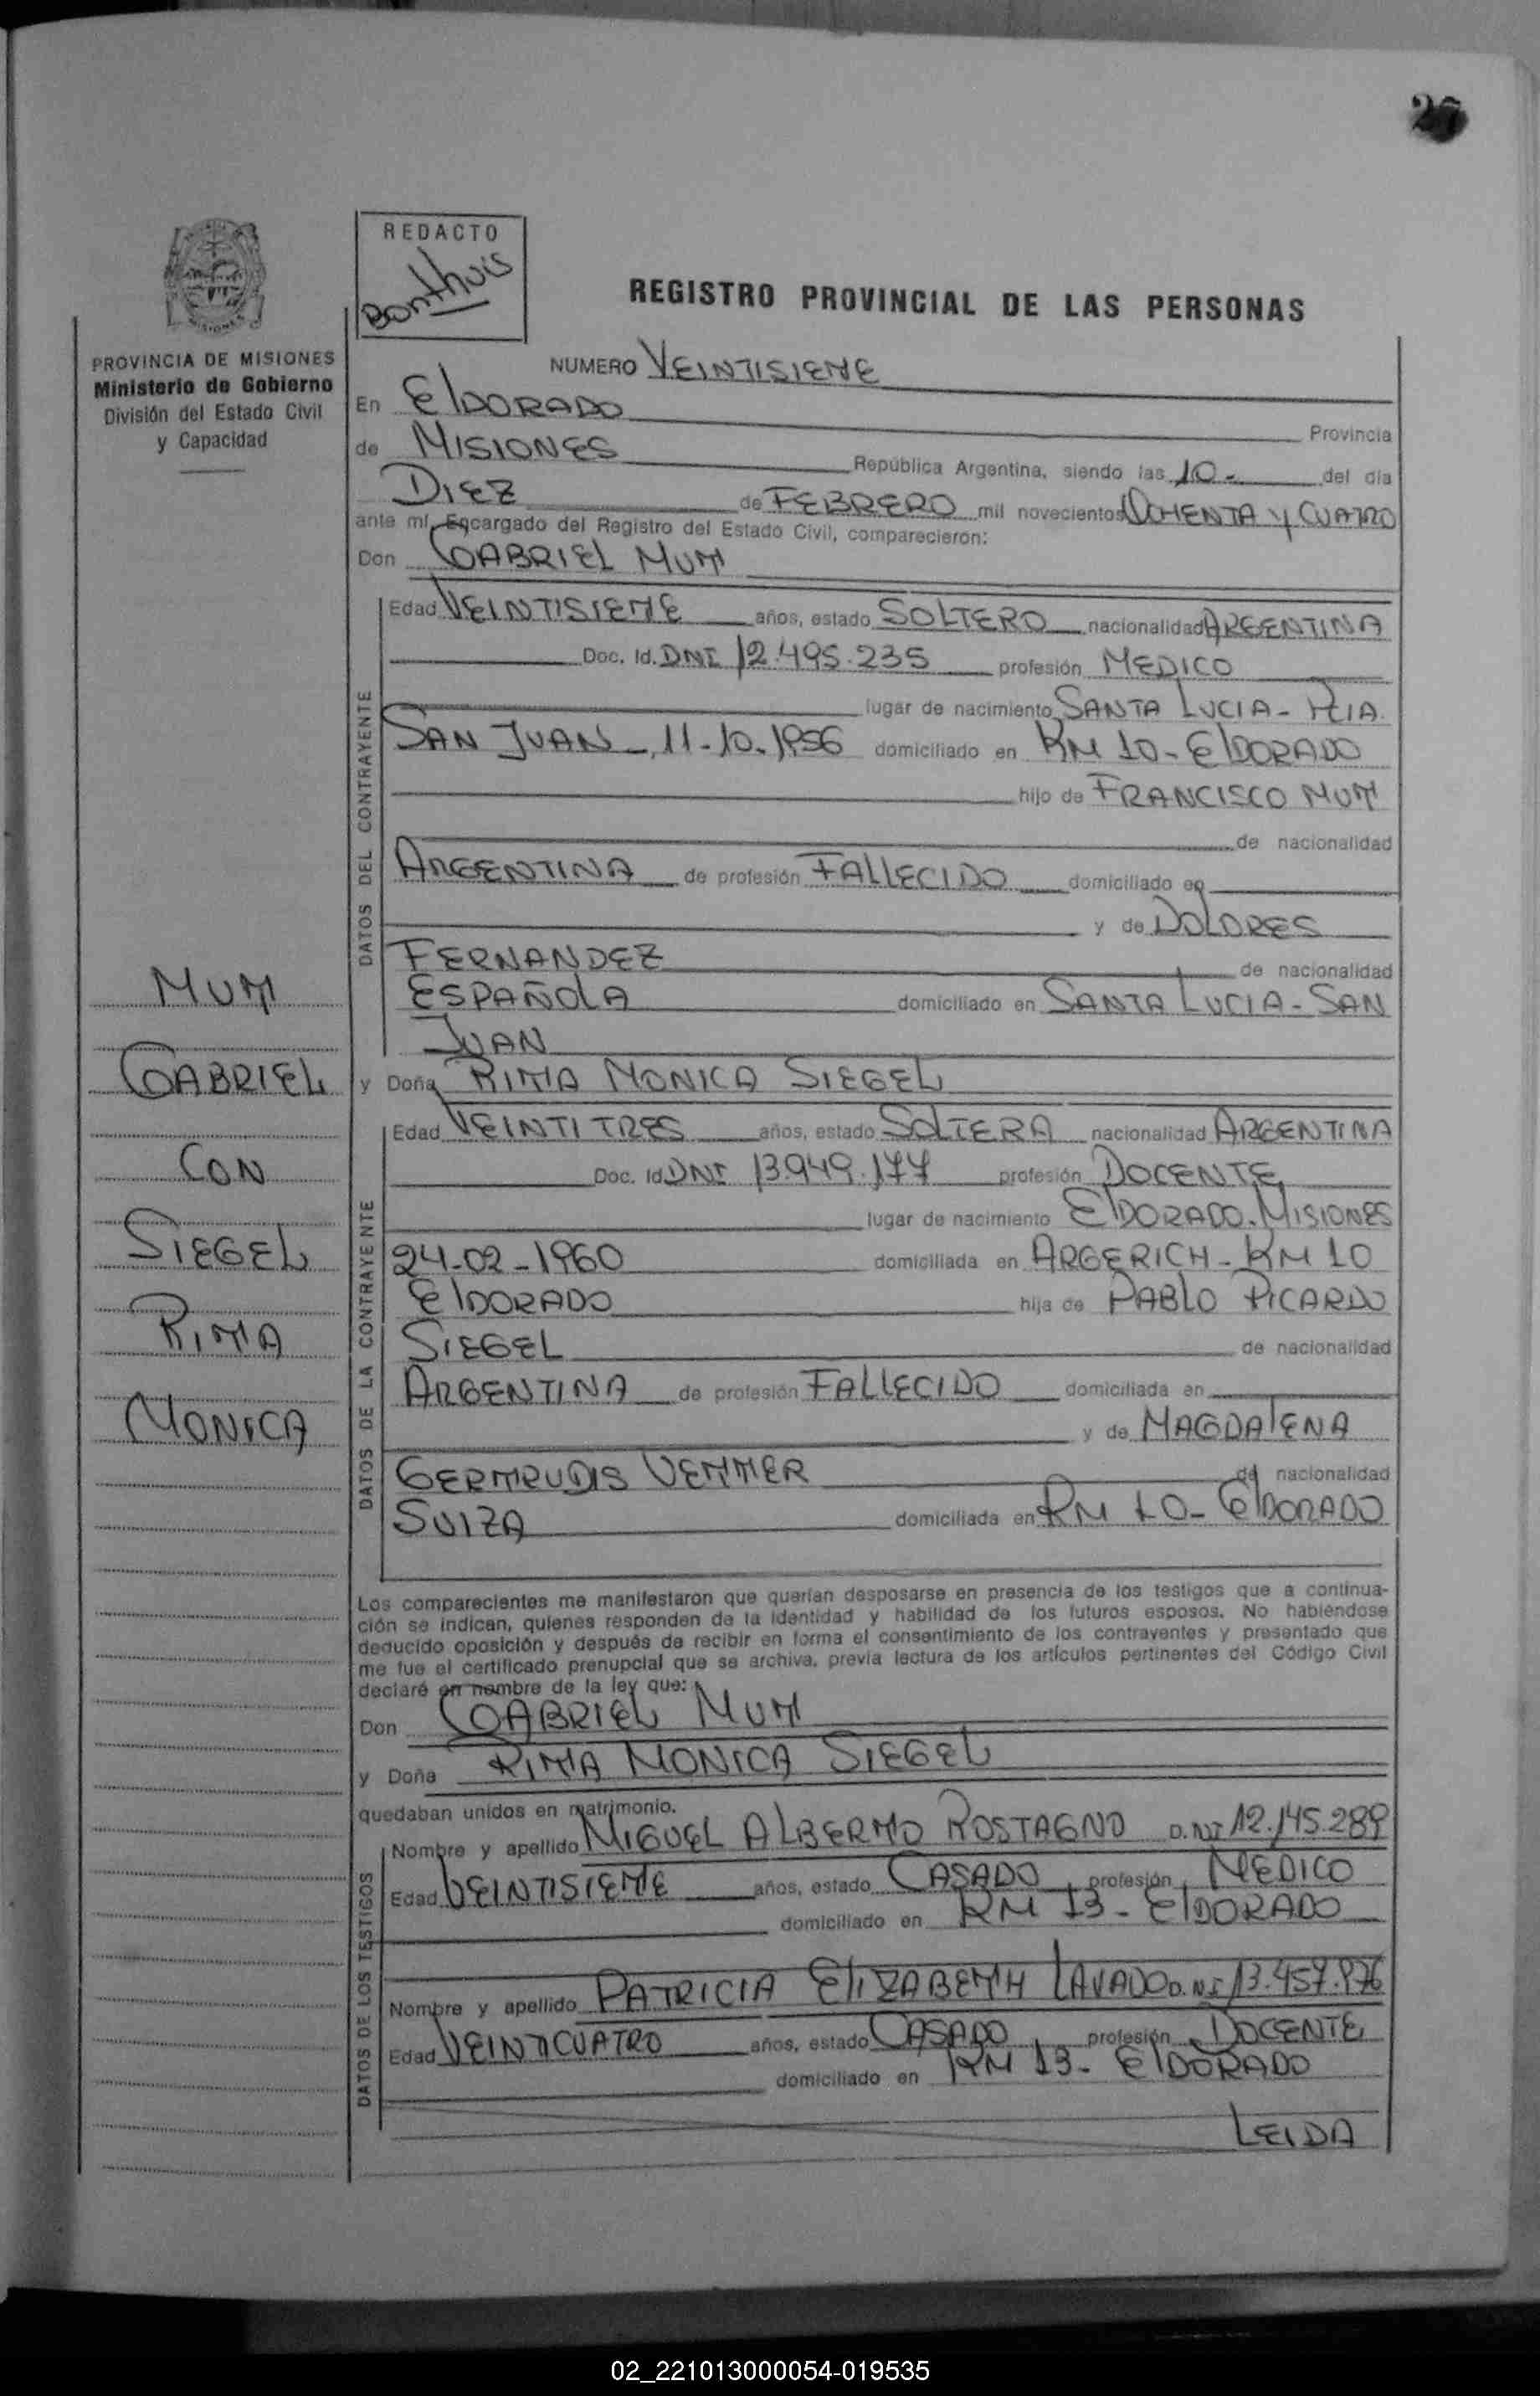 27
REDACTO
Bonthuis
REGISTRO PROVINCIAL DE LAS PERSONAS
MISIONES
PROVINCIA DE MISIONES
Ministerio de Gobierno
División del Estado Civil
y Capacidad
NUMERO VEINTISIETE
En ElDORADO Provincia
de MISIONES República Argentina, siendo las 10- del día
DIEZ de FEBRERO mil novecientos OCHENTA Y CUATRO
ante mí, Encargado del Registro del Estado Civil, comparecieron:
Don GABRIEL MUTT
DATOS DEL CONTRAYENTE
Edad VEINTISIETE años, estado SOLTERO nacionalidad ARGENTINA
Doc. Id. DNI 12.495.235 profesión MEDICO
lugar de nacimiento SANTA LUCIA - PCIA
SAN JUAN -, 11-10-1956 domiciliado en KM 10 - ElDORADO
hijo de FRANCISCO MUTT
de nacionalidad
ARGENTINA de profesión FALLECIDO domiciliado en
y de DOLORES
FERNANDEZ de nacionalidad
ESPAÑOLA domiciliado en SANTA LUCIA - SAN
JUAN
y Doña RITTA MONICA SIEGEL
DATOS DE LA CONTRAYENTE
Edad VEINTITRES años, estado SOLTERA nacionalidad ARGENTINA
Doc. Id. DNI 13.949.177 profesión DOCENTE
lugar de nacimiento ElDORADO. MISIONES
24-02-1960 domiciliada en ARGERICH - KM 10
ElDORADO hija de PABLO RICARDO
SIEGEL de nacionalidad
ARGENTINA de profesión FALLECIDO domiciliada en
y de MAGDALENA
GERTRUDIS VETTER de nacionalidad
SUIZA domiciliada en KM 10 - ElDORADO
MUTT
GABRIEL
CON
SIEGEL
RITTA
MONICA
Los comparecientes me manifestaron que querían desposarse en presencia de los testigos que a continua-
ción se indican, quienes responden de la identidad y habilidad de los futuros esposos. No habiéndose
deducido oposición y después de recibir en forma el consentimiento de los contrayentes y presentado que
me fue el certificado prenupcial que se archiva, previa lectura de los artículos pertinentes del Código Civil
declaré en nombre de la ley que:
Don GABRIEL MUTT
y Doña RITTA MONICA SIEGEL
quedaban unidos en matrimonio.
DATOS DE LOS TESTIGOS
Nombre y apellido MIGUEL ALBERTO ROSTAGNO D.NI 12.145.289
Edad VEINTISIETE años, estado CASADO, profesión MEDICO
domiciliado en KM 13 - ElDORADO
Nombre y apellido PATRICIA ELIZABETH LAVADO D.NI 13.457.876
Edad VEINTICUATRO años, estado CASADO, profesión DOCENTE
domiciliado en KM 13 - ElDORADO
LEIDA
02_221013000054-019535